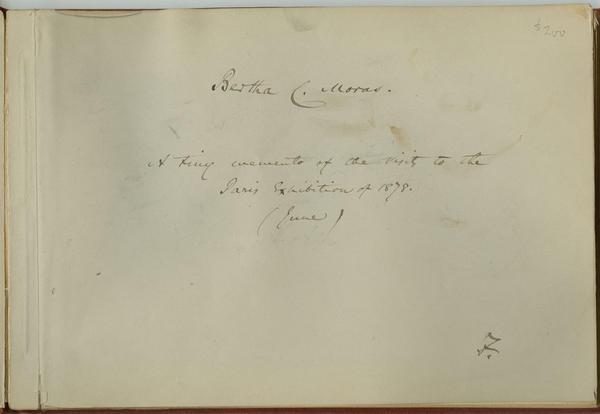 $200
Bertha C. Moras.
A tiny memento of the visit to the
Paris Exhibition of 1878.
(June)